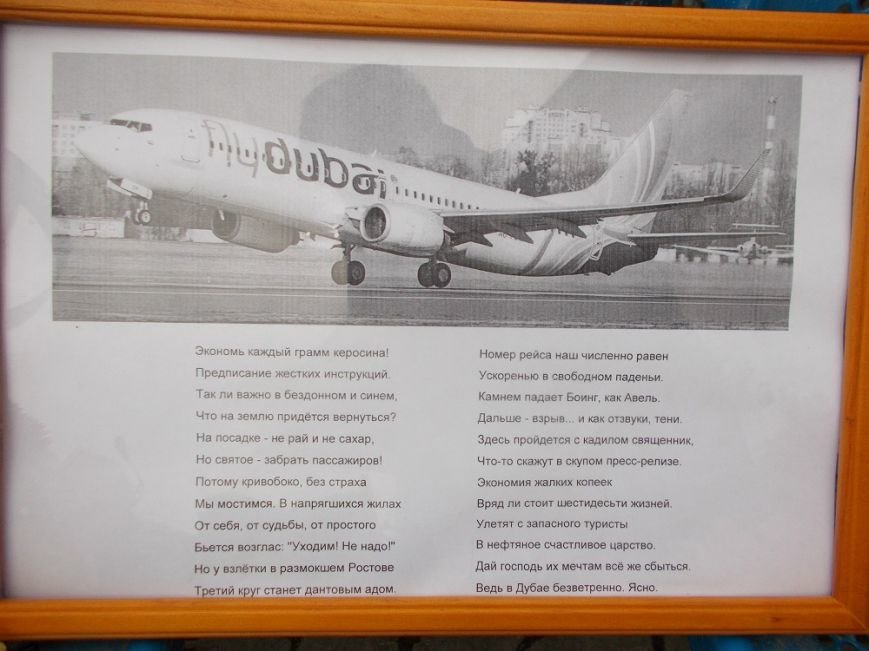 flydubai
Экономь каждый грамм керосина!
Предписание жестких инструкций.
Так ли важно в бездонном и синем,
Что на землю придётся вернуться?
На посадке - не рай и не сахар,
Но святое - забрать пассажиров!
Потому кривобоко, без страха
Мы мостимся. В напрягшихся жилах
От себя, от судьбы, от простого
Бьется возглас: "Уходим! Не надо!"
Но у взлётки в размокшем Ростове
Третий круг станет дантовым адом.
Номер рейса наш численно равен
Ускоренью в свободном паденьи.
Камнем падает Боинг, как Авель.
Дальше - взрыв... и как отзвуки, тени.
Здесь пройдется с кадилом священник,
Что-то скажут в скупом пресс-релизе.
Экономия жалких копеек
Вряд ли стоит шестидесьти жизней.
Улетят с запасного туристы
В нефтяное счастливое царство.
Дай господь их мечтам всё же сбыться.
Ведь в Дубае безветренно. Ясно.